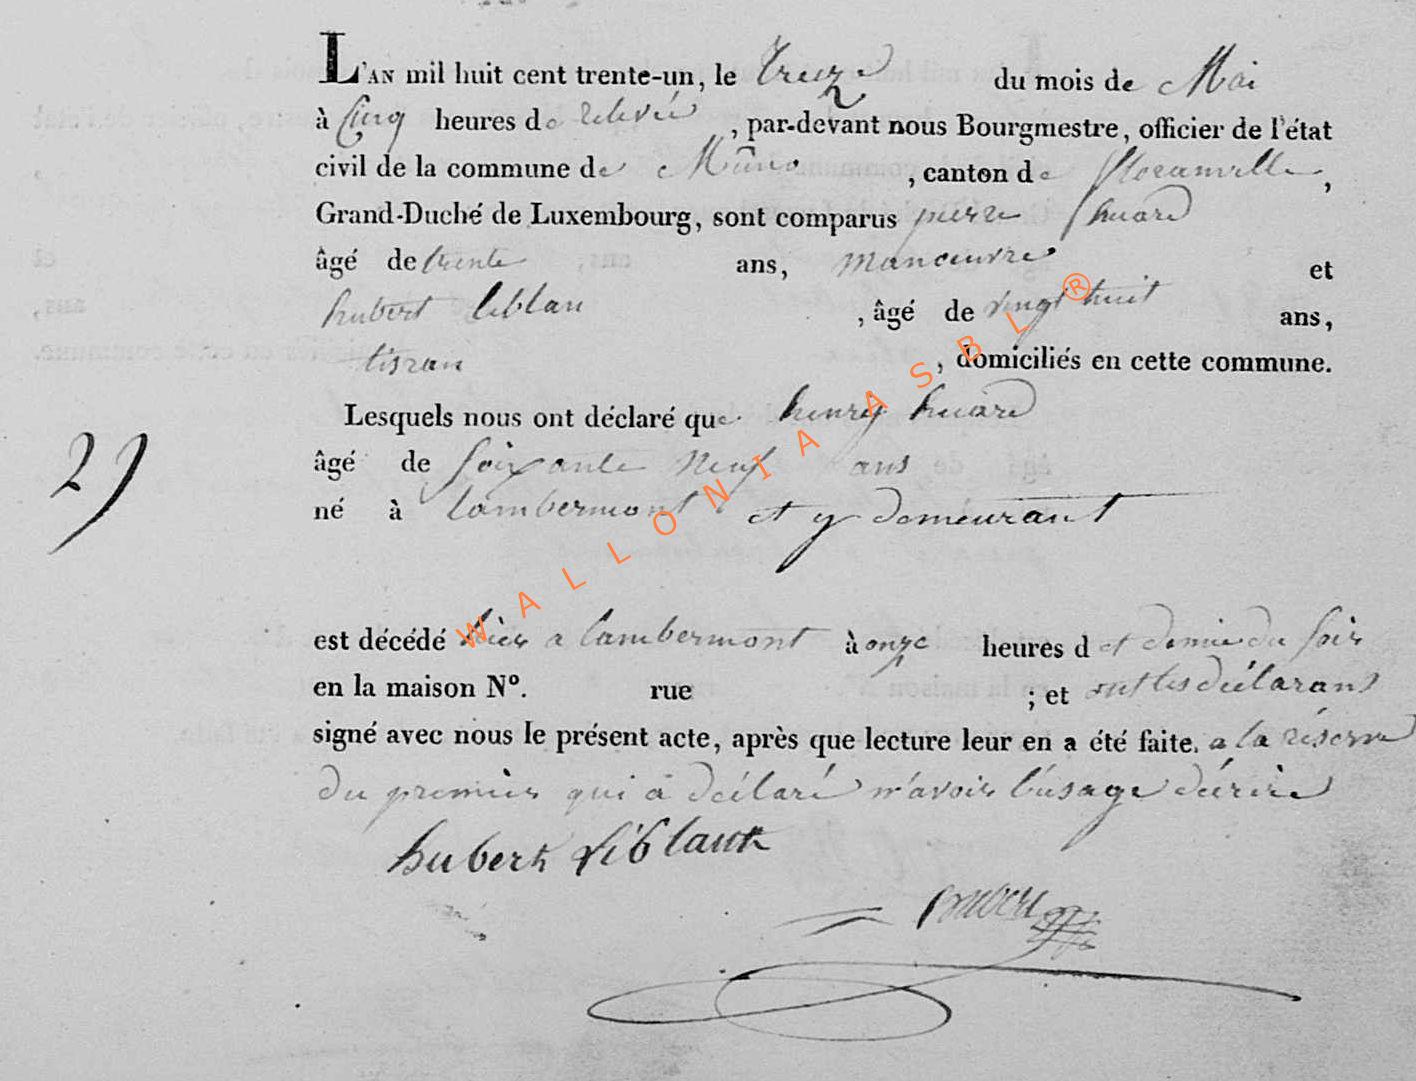 L'AN mil huit cent trente-un, le treize du mois de Mai
à Cinq heures de relevée, par-devant nous Bourgmestre, officier de l'état
civil de la commune de Mûno, canton de florenville,
Grand-Duché de Luxembourg, sont comparus pierre huard
âgé de trente ans, manoeuvre et
hubert leblan, âgé de vingt huit ans,
tisran, domiciliés en cette commune.
Lesquels nous ont déclaré que henry huard
âgé de soixante neuf ans
29
né à lambermont et y demeurant
est décédé hier a lambermont à onze heures d et demie du soir
en la maison N°. rue ; et ont les déclarans
signé avec nous le présent acte, après que lecture leur en a été faite. a la réserve
du premier qui a déclaré n'avoir l'usage décrire
hubert leblant
WALLONIA ASBL®